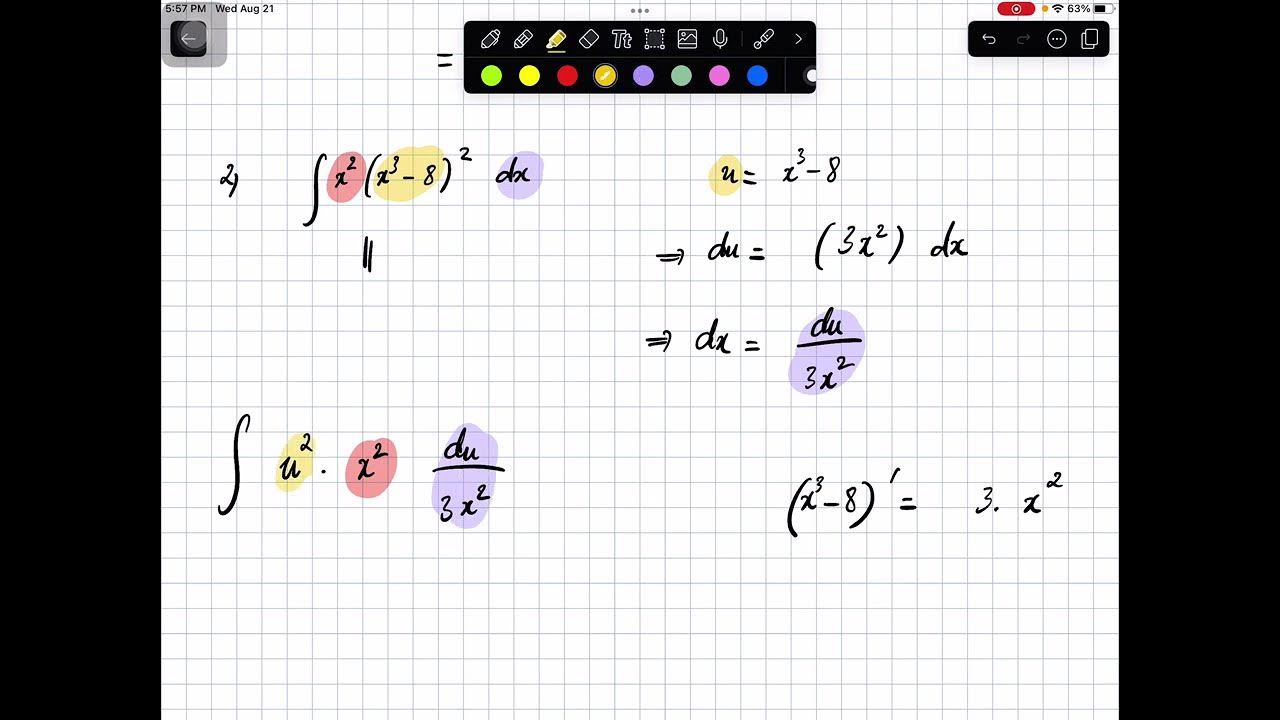 5:57 PM Wed Aug 21 63%
Tt
=
2) ∫ x² (x³ - 8)² dx u = x³ - 8
|| ⇒ du = (3x²) dx
⇒ dx = du / 3x²
∫ u² · x² du / 3x² (x³ - 8)' = 3. x²